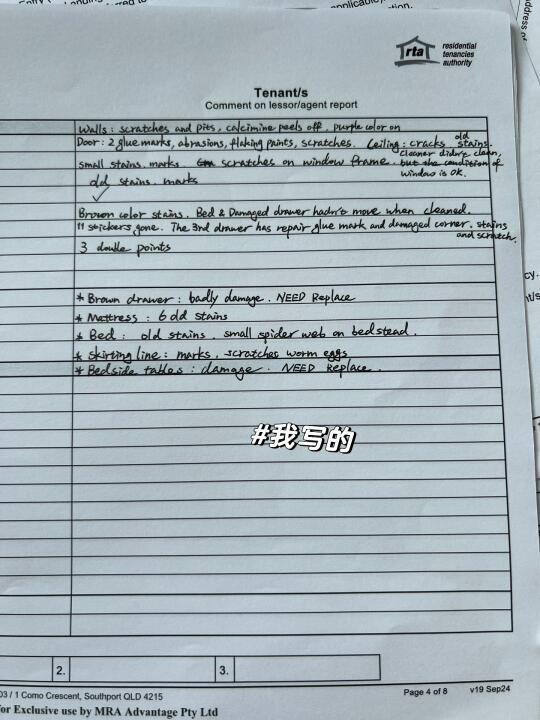 rta residential
tenancies
authority
Tenant/s
Comment on lessor/agent report
Walls: scratches and pits, calcimine peels off, purple color on
Door: 2 glue marks, abrasions, flaking paints, scratches. Ceiling: cracks old stains.
small stains. marks. scratches on window frame. cleaner didn't clean, but the condition of window is ok.
old stains. marks
✓
Brown color stains. Bed & Damaged drawer hadn't move when cleaned.
11 stickers gone. The 3rd drawer has repair glue mark and damaged corner. stains and scratch.
3 double points
* Brown drawer: badly damage. NEED Replace
* Mattress: 6 old stains
* Bed: old stains. small spider web on bedstead.
* Skirting line: marks, scratches worm eggs
* Bedside tables: damage. NEED Replace.
#我写的
2. 3.
03 / 1 Como Crescent, Southport QLD 4215 Page 4 of 8 v19 Sep24
for Exclusive use by MRA Advantage Pty Ltd